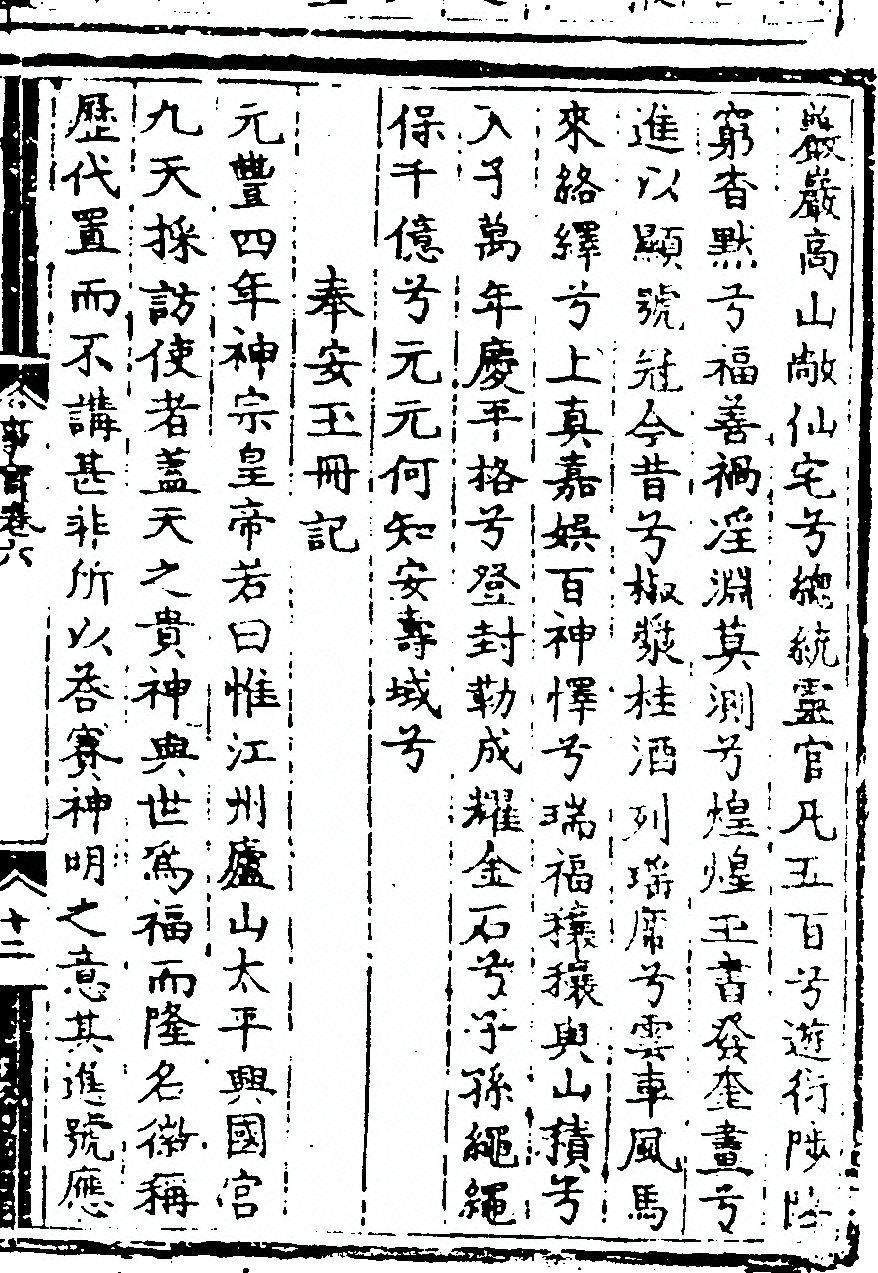 巖巖高山敞仙宅兮總統靈官凡五百兮遊衍陟降
窮杳默兮福善禍淫淵莫測兮煌煌玉書發奎畫兮
進以顯號冠今昔兮椒漿桂酒列瑤席兮雲車風馬
來絡繹兮上真嘉娛百神懌兮瑞福穰穰與山積兮
入子萬年慶平格兮登封勒成耀金石兮子孫繩繩
保千億兮元元何知安壽域兮
奉安玉冊記
元豐四年神宗皇帝若曰惟江州廬山太平興國宮
九天採訪使者蓋天之貴神與世爲福而隆名徽稱
歷代置而不講甚非所以荅賽神明之意其進號應
事實卷六
十二